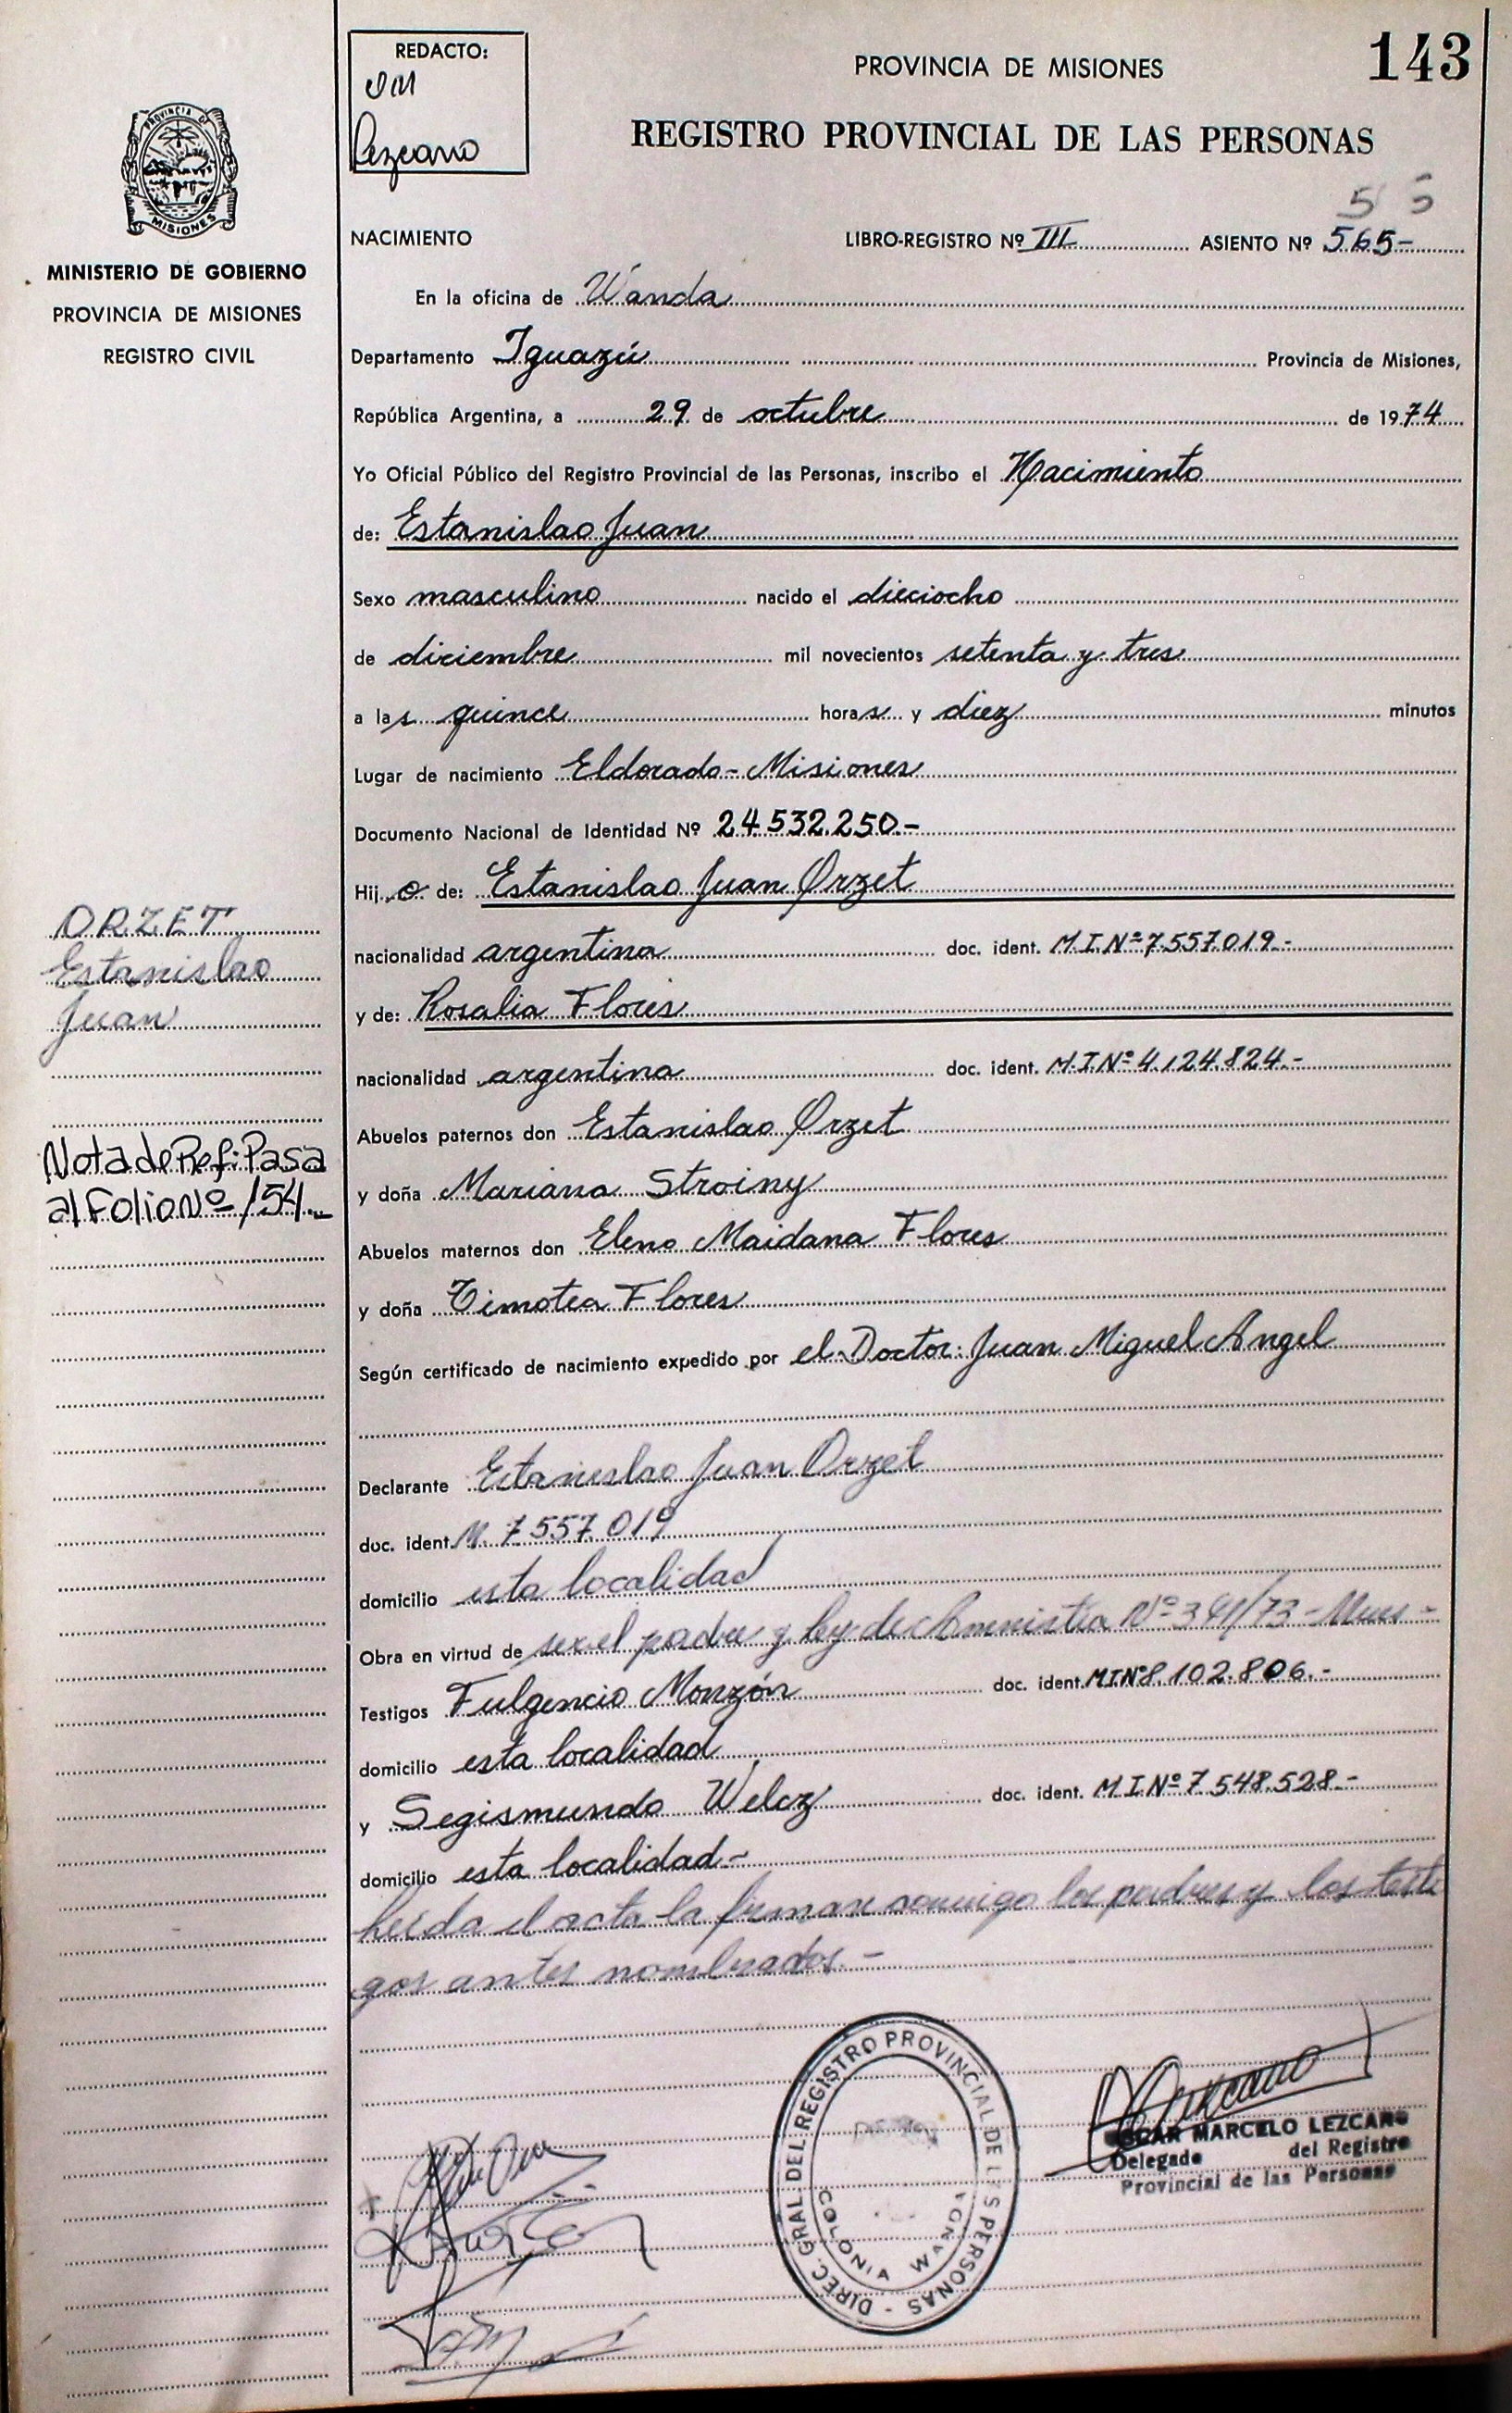 REDACTO:
Lezcano
PROVINCIA DE MISIONES
143
REGISTRO PROVINCIAL DE LAS PERSONAS
PROVINCIA DE
MISIONES
MINISTERIO DE GOBIERNO
PROVINCIA DE MISIONES
REGISTRO CIVIL
NACIMIENTO LIBRO-REGISTRO Nº III ASIENTO Nº 565-
En la oficina de Wanda
Departamento Iguazú Provincia de Misiones,
República Argentina, a 29 de octubre de 1974
Yo Oficial Público del Registro Provincial de las Personas, inscribo el Nacimiento
de: Estanislao Juan
Sexo masculino nacido el dieciocho
de diciembre mil novecientos setenta y tres
a las quince horas y diez minutos
Lugar de nacimiento Eldorado - Misiones
Documento Nacional de Identidad Nº 24.532.250.-
Hijo de: Estanislao Juan Orzet
nacionalidad argentina doc. ident. M.I.Nº 7.557.019-
y de: Rosalia Flores
nacionalidad argentina doc. ident. M.I.Nº 4.124.824.-
Abuelos paternos don Estanislao Orzet
y doña Mariana Stroiny
Abuelos maternos don Eleno Maidana Flores
y doña Timotea Flores
Según certificado de nacimiento expedido por el Doctor: Juan Miguel Angel
Declarante Estanislao Juan Orzet
doc. ident. M. 7.557.019
domicilio esta localidad
Obra en virtud de ser el padre y ley de Amnistia Nº 341/73-
Testigos Fulgencio Monzón doc. ident. MINº8.102.806.-
domicilio esta localidad
y Segismundo Welcz doc. ident. MINº 7.548.528.-
domicilio esta localidad-
Leída el acta la firman conmigo los padres y los testi
gos antes nombrados.-
ORZET
Estanislao
Juan
Nota de Ref: Pasa
al folio Nº 154.-
DIREC. GRAL. DEL REGISTRO PROVINCIAL DE LAS PERSONAS -
COLONIA WANDA
Lezcano
OSCAR MARCELO LEZCANO
Delegado del Registro
Provincial de las Personas